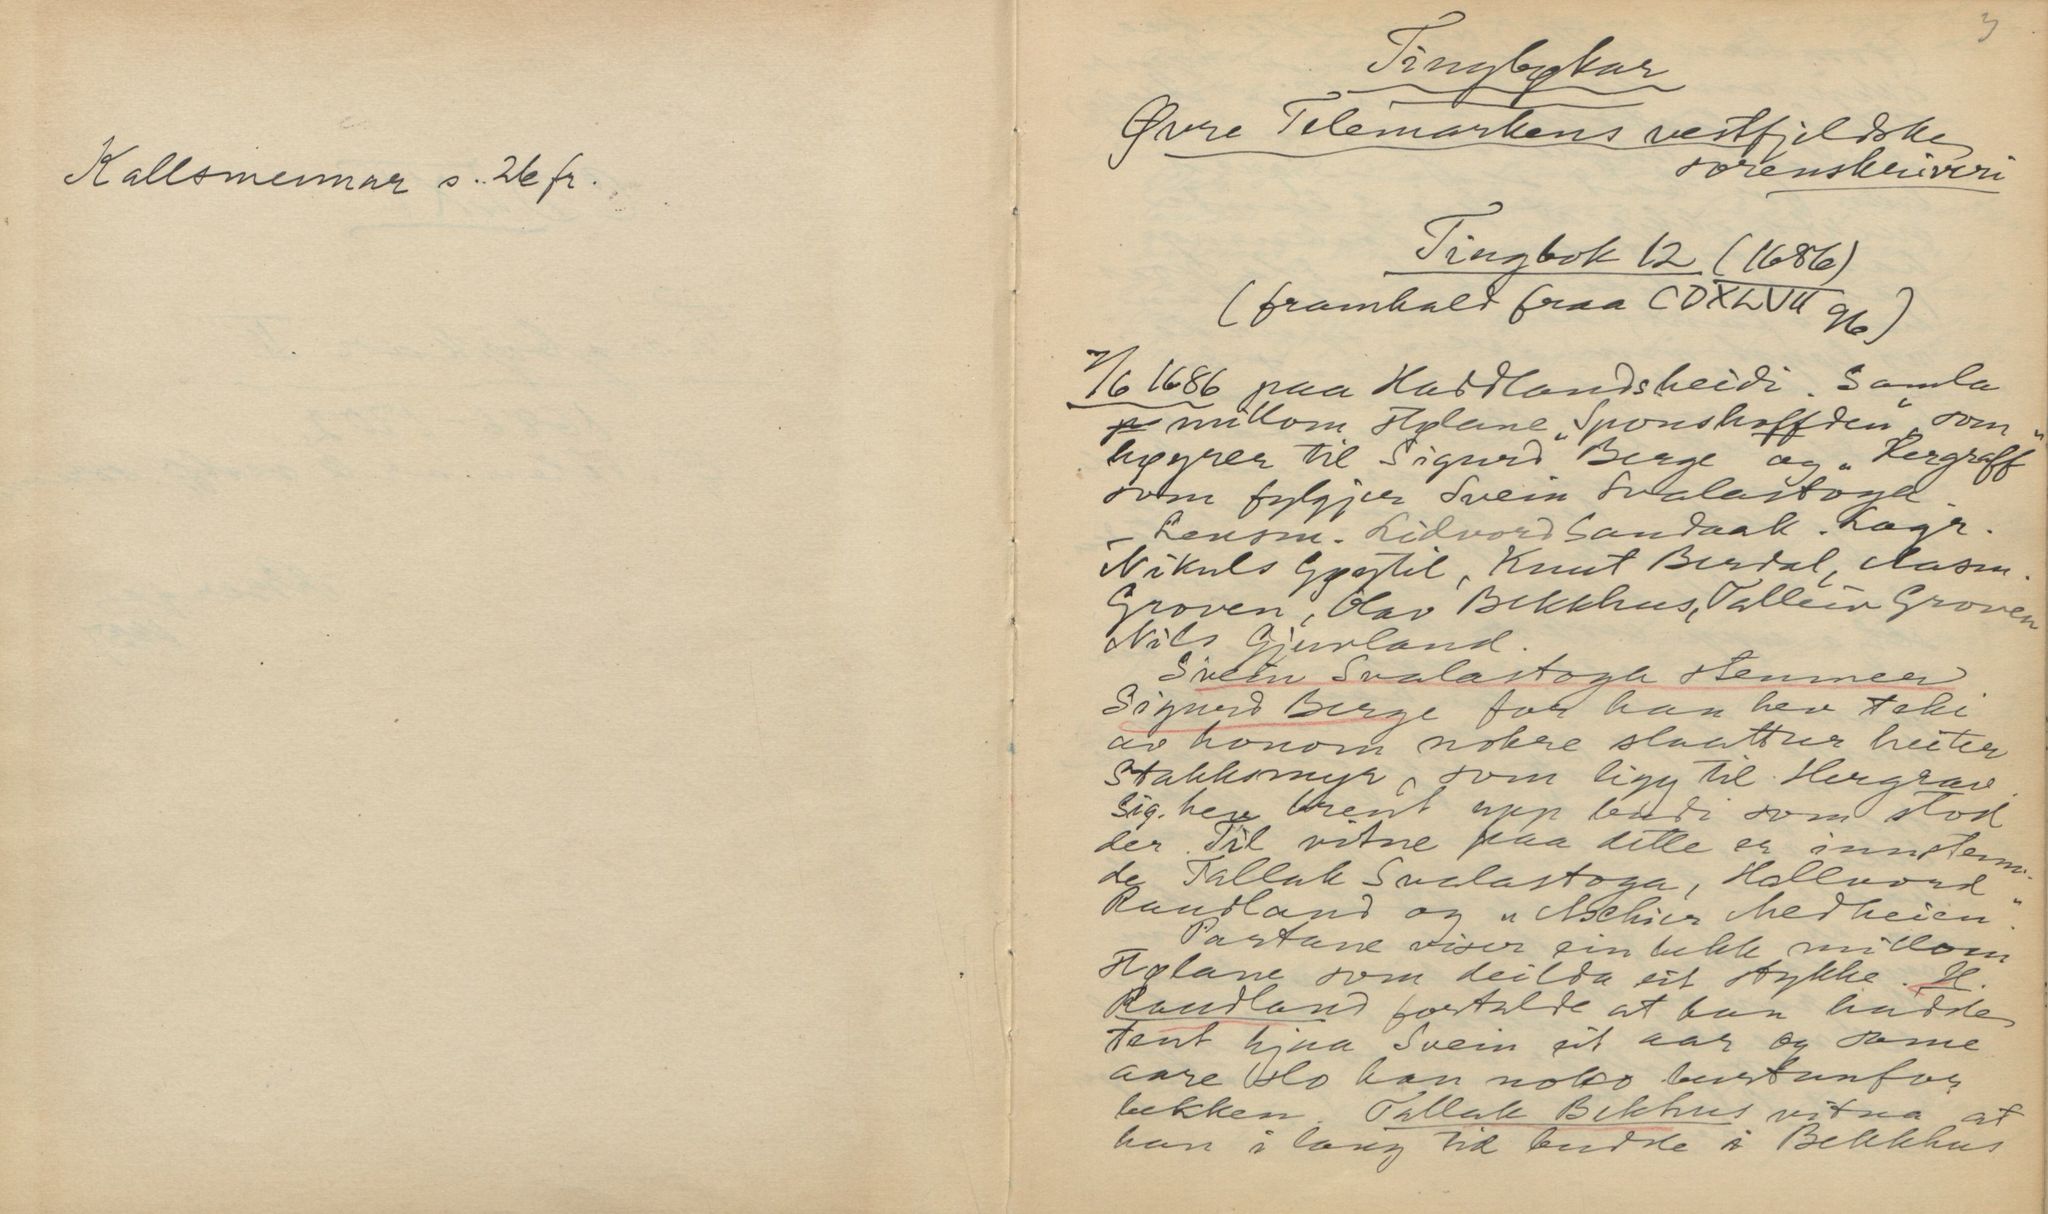 Kallsmennar s. 26 fr.
3
Tingbøkar
Øvre Telemarkens vestfjeldske
sorenskriveri
Tingbok 12 (1686)
(framhald fraa CDXLVII 96)
7/6 1686 paa Haddlandsheidi. Samla
millom stølane "Sponshoffden" som
høyrer til Sigurd Berge og "Hergraff"
som fylgjer Svein Svalastoga.
- Lensm. Lidvord Sandaak. Lagr.
Nikuls Gøytil, Knut Berdal, Aasm.
Groven, Olav Bekkhus, Talleiv Groven
Nils Gjuvland.
Svein Svalastoga stemner
Sigurd Berge for han hev teki
av honom nokre slaattur heiter
Stakksmyr, som ligg til Hergrav.
Sig. hev brent upp budi som stod
der. Til vitne paa dette er innstem-
de Tallak Svalastoga, Hallvord
Raudland og "Aschier Medheien".
Partane viser ein bekk millom
stølane som deilda eit stykke. H.
Raudland fortalde at han hadde
tent hjaa Svein eit aar og same
aare slo han noko burtanfor
bekken. Tallak Bekhus vitna at
han i lang tid budde i Bekkhus